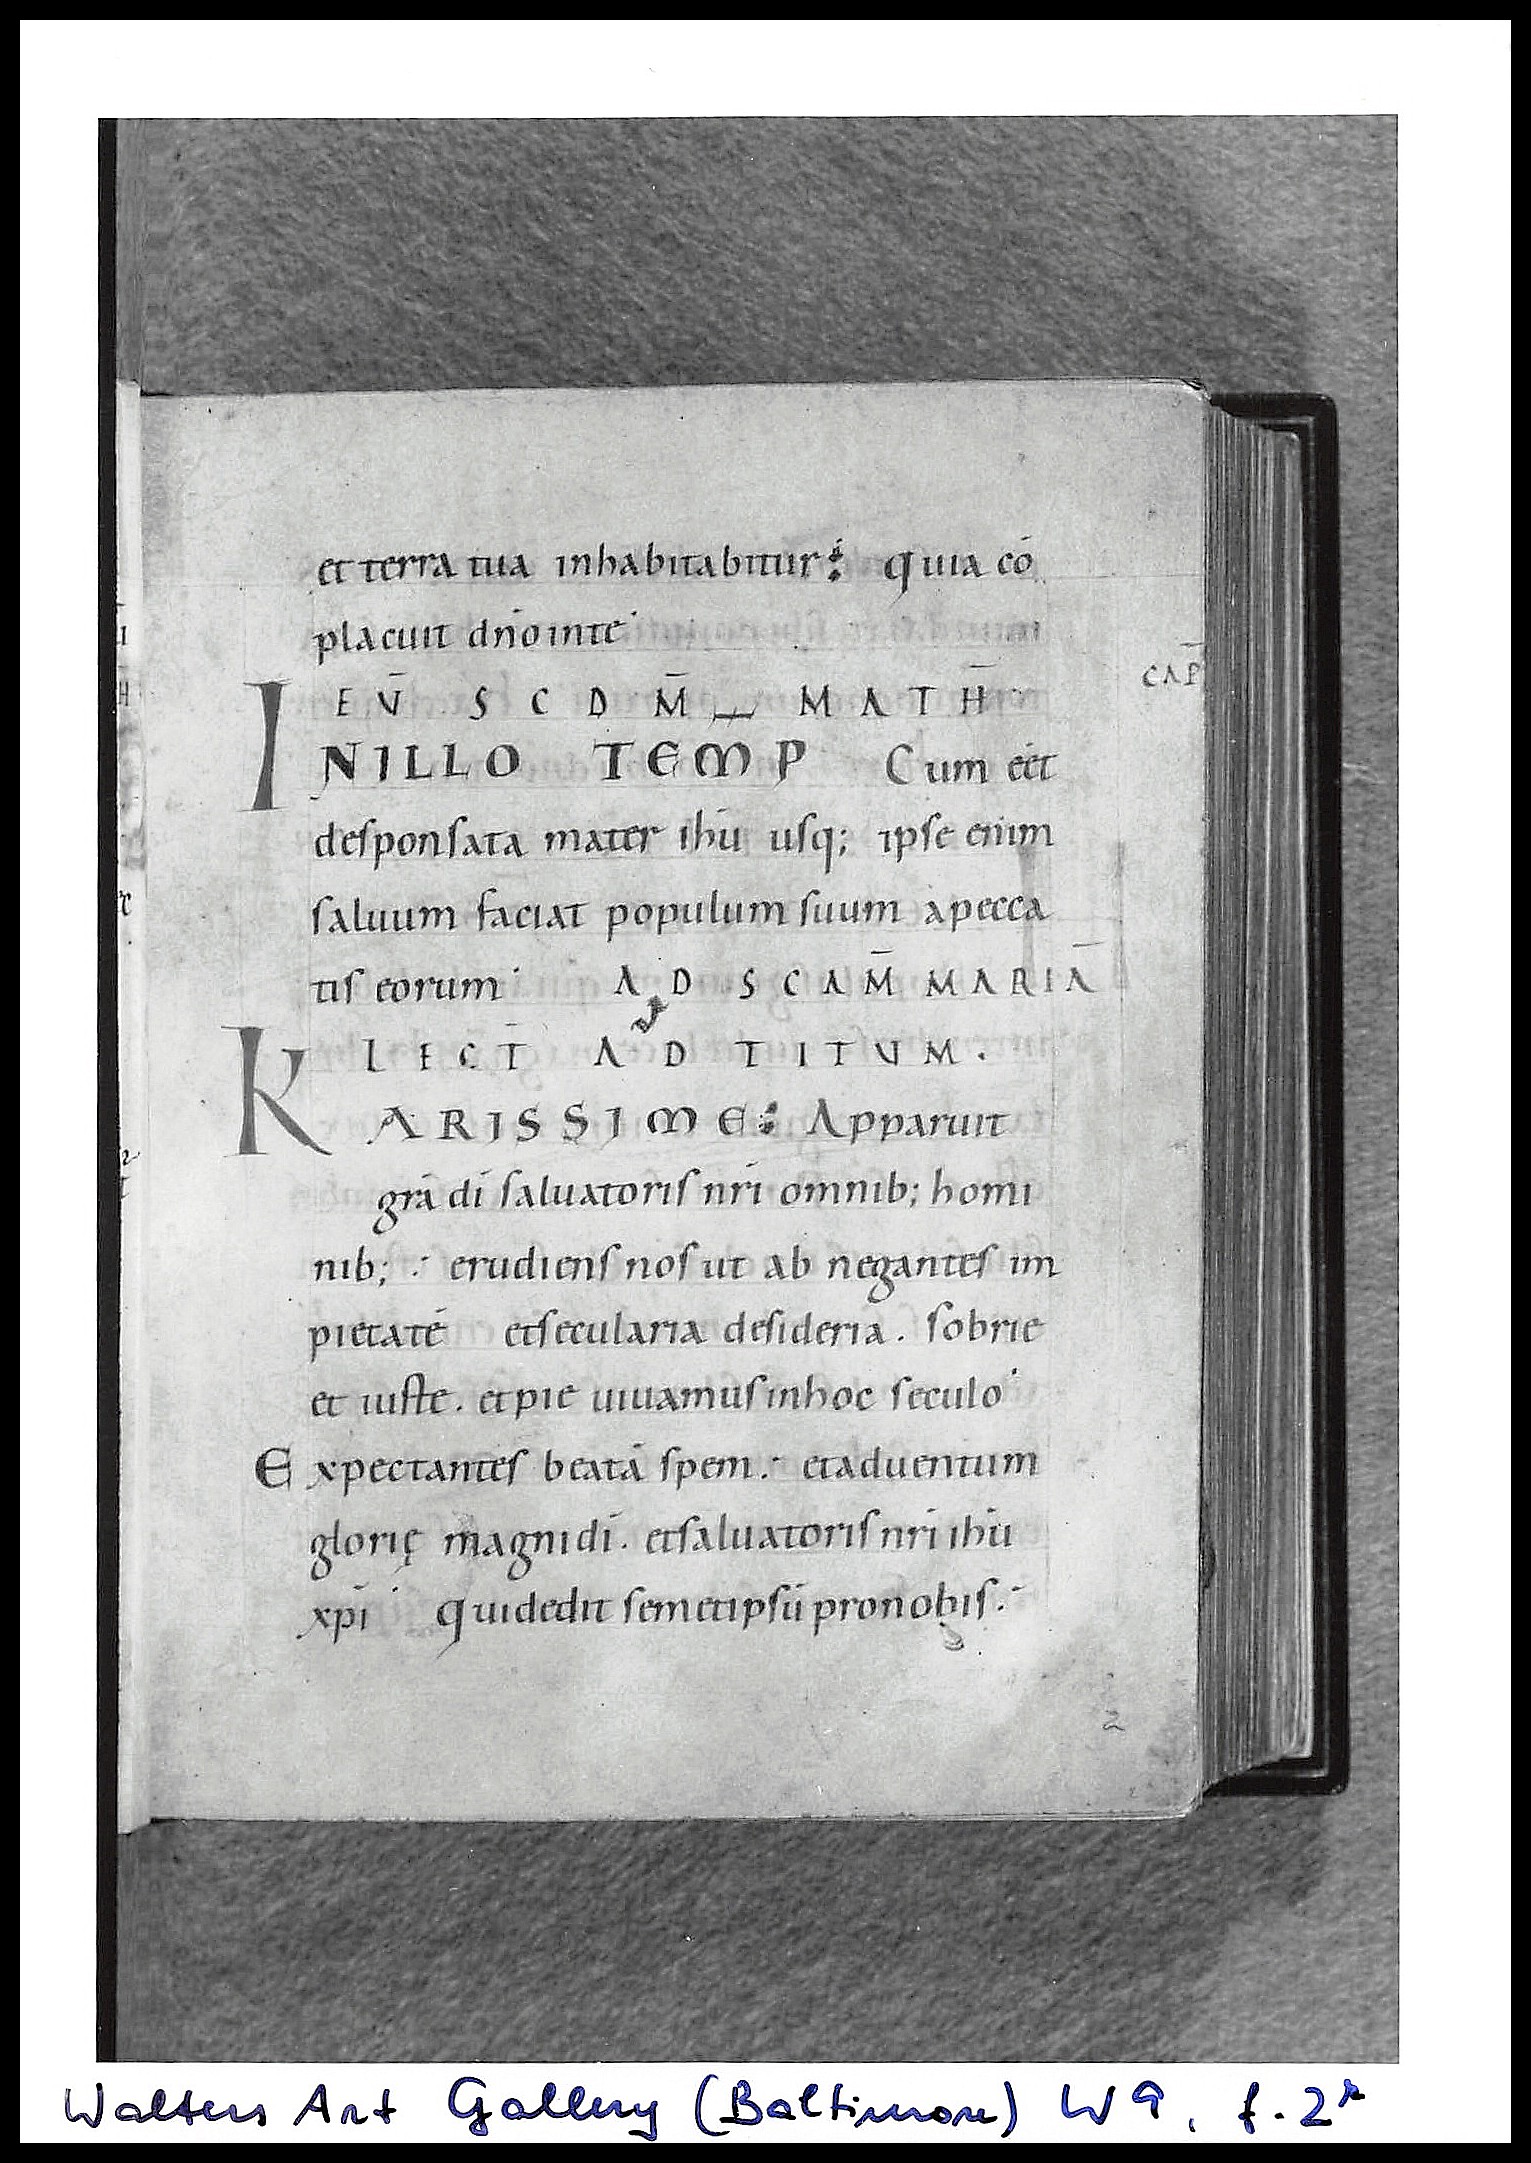 et terra tua inhabitabitur: quia cō
placuit dn̄o inte
EṼ SCDM̄ MATH̄
INILLO TEMP Cum eēt
desponsata mater ihū usq; ipse enim
saluum faciat populum suum apecca
tis eorum AD SCAM̄ MARIĀ
LECT̄ AD TITUM.
KARISSIME: Apparuit
grā dī saluatoris nrī omnib; homi
nib; erudiens nos ut ab negantes im
pietatē et secularia desideria. sobrie
et iuste. et pie uiuamus inhoc seculo
Expectantes beatā spem. et aduentum
glorię magni dī. et saluatoris nrī ihū
xpī qui dedit semetipsū pro nobis.
CAP̄
2
Walters Art Gallery (Baltimore) W 9, f. 2r